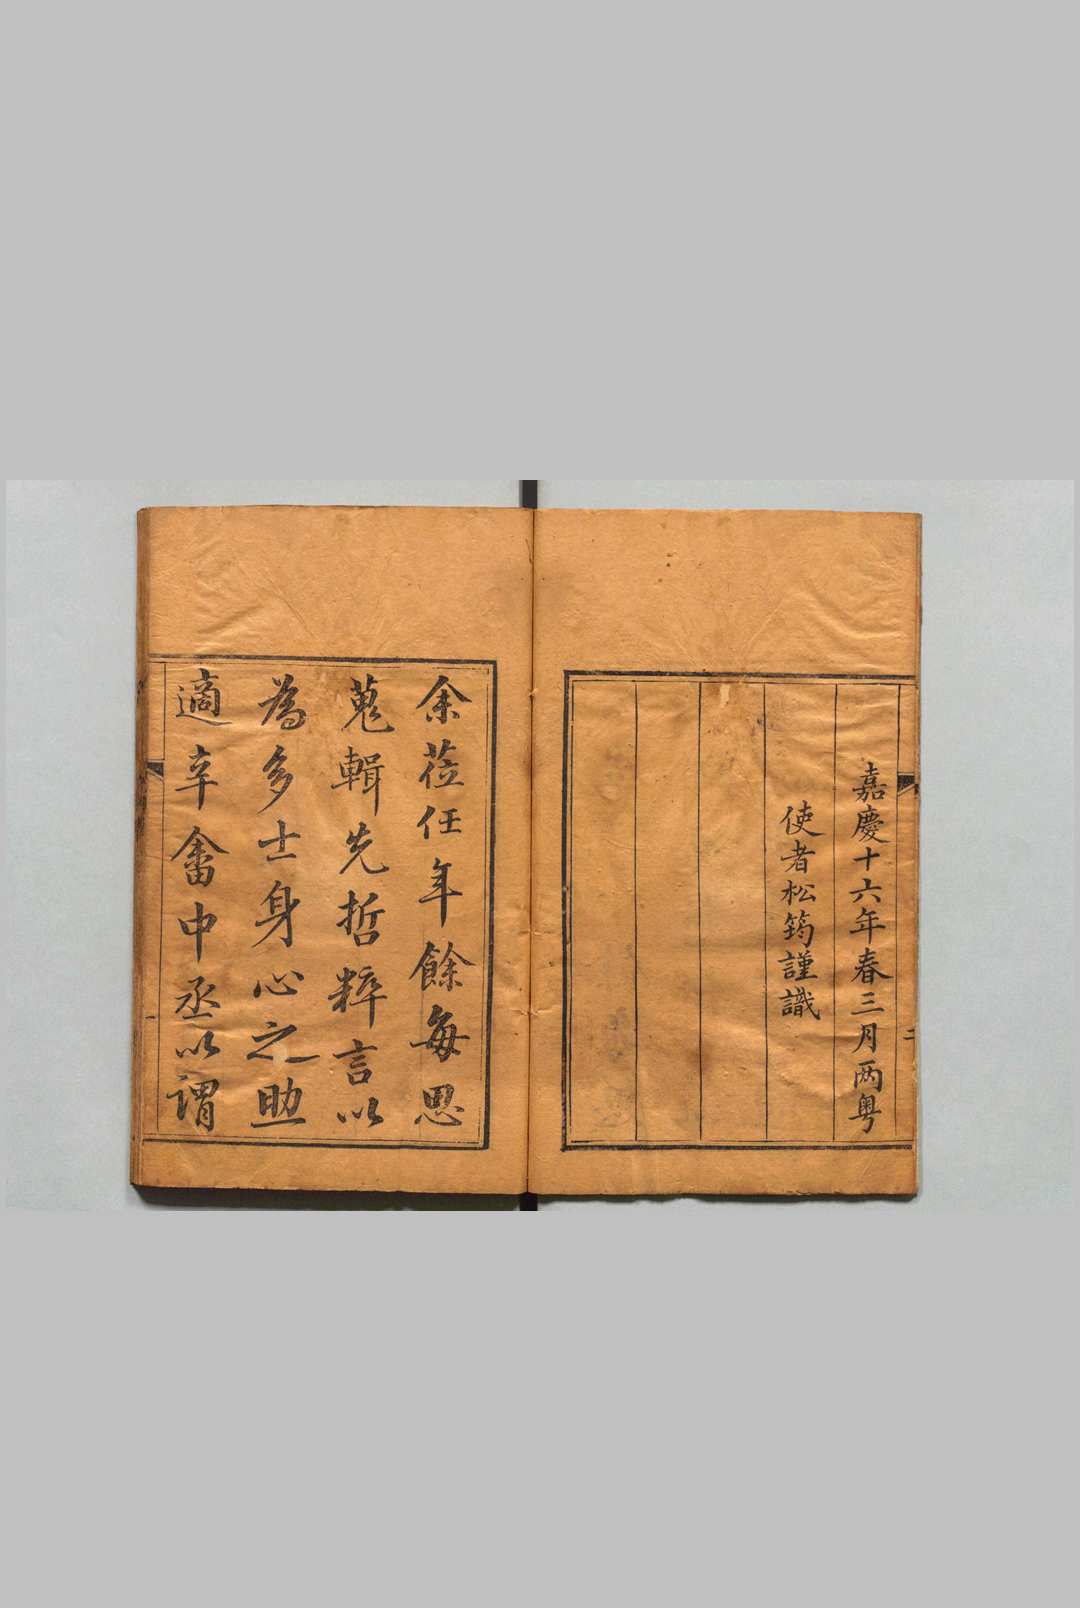 嘉慶十六年春三月两粤
使者松筠謹識
二
余莅任年餘每思
蒐輯先哲粹言以
為多士身心之助
適辛畬中丞以謂
一